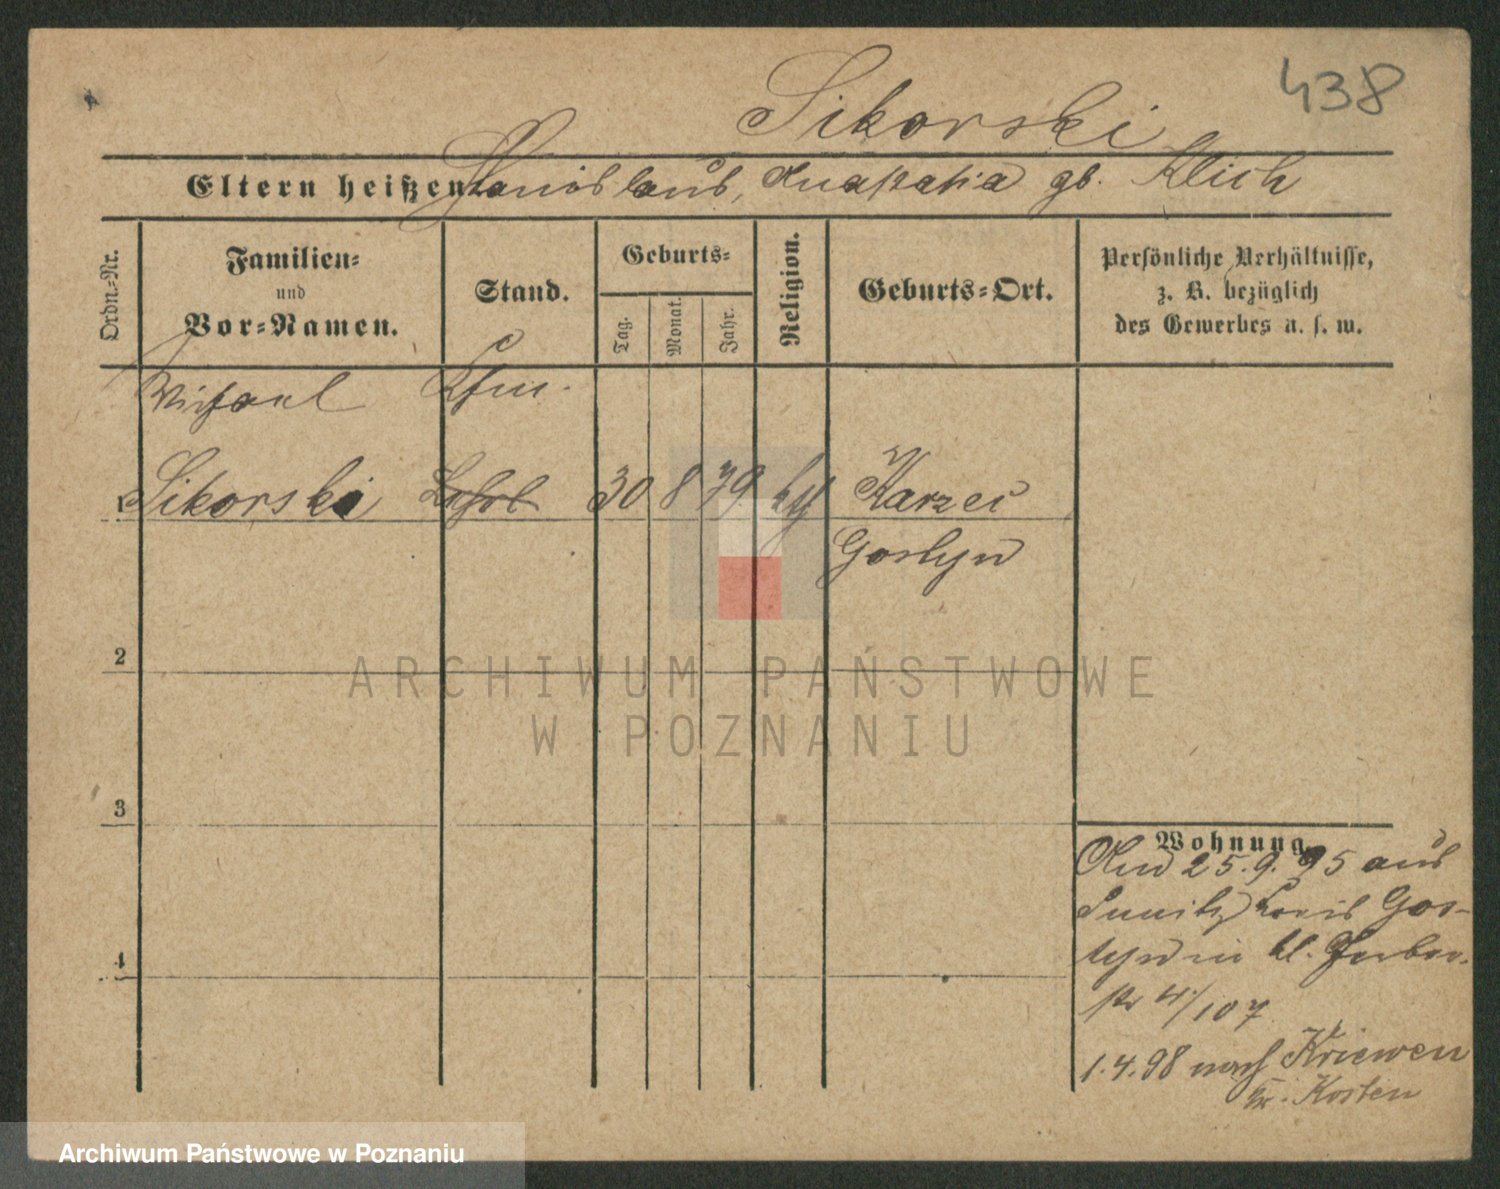 438
Sikorski
Eltern heißen Stanislaus, Anastasia gb. Klich
Ordn.-Nr.
Familien- und Vor-Namen.
Stand.
Geburts-
Tag.
Monat.
Jahr.
Religion.
Geburts-Ort.
Persönliche Verhältnisse,
z. B. bezüglich
des Gewerbes u. s. w.
Michael Kfm.
1 Sikorski 30 8 79 kth Karzec
Gostyn
2
3
4
Wohnung.
25.9.95 aus
Kreis Gos-
tyn in kl. Gerber-
str 4/107
1.4.98 nach Kriewen
Kr. Kosten
ARCHIWUM PAŃSTWOWE
W POZNANIU
Archiwum Państwowe w Poznaniu